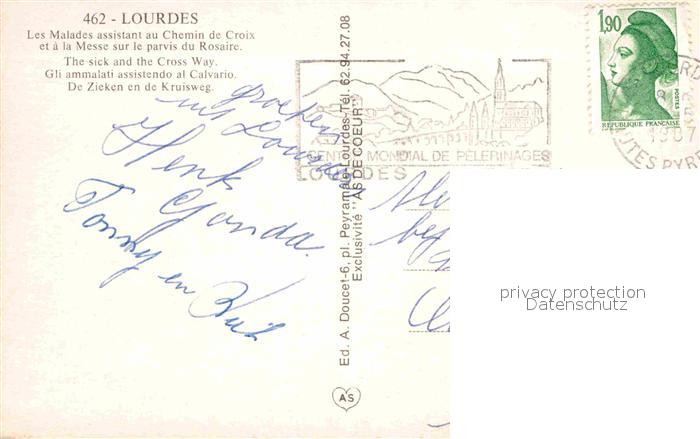 462 - LOURDES
Les Malades assistant au Chemin de Croix
et à la Messe sur le parvis du Rosaire.
The sick and the Cross Way.
Gli ammalati assistendo al Calvario.
De Zieken en de Kruisweg.
groetjens
uit Lourdes
Henk
Gonda.
Tonny en Rub
Ed. A. Doucet-6, pl. Peyramale-Lourdes-Tél. 62.94.27.08
Exclusivité "AS DE COEUR"
AS
CENTRE MONDIAL DE PÈLERINAGES
LOURDES
1,90
POSTES
REPUBLIQUE FRANÇAISE
1987
privacy protection
Datenschutz